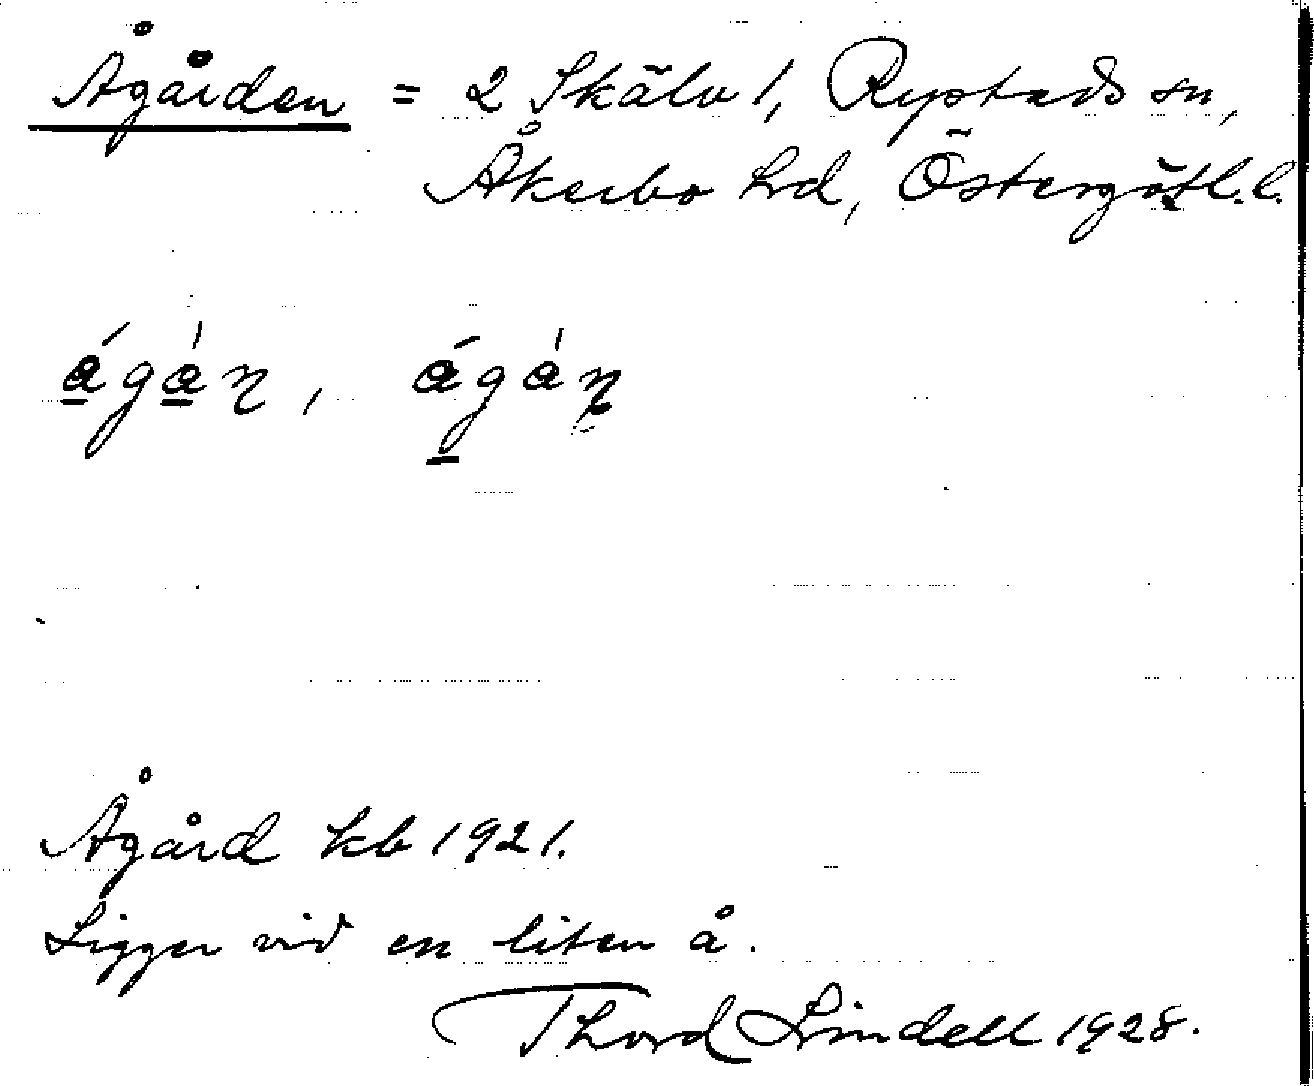 Ågården = 2 Skälv 1, Rystads sn,
Åkerbo hd, Östergötl. l.
ágán, ágán
Ågård kb 1921.
Ligger vid en liten å.
Thord Lindell 1928.